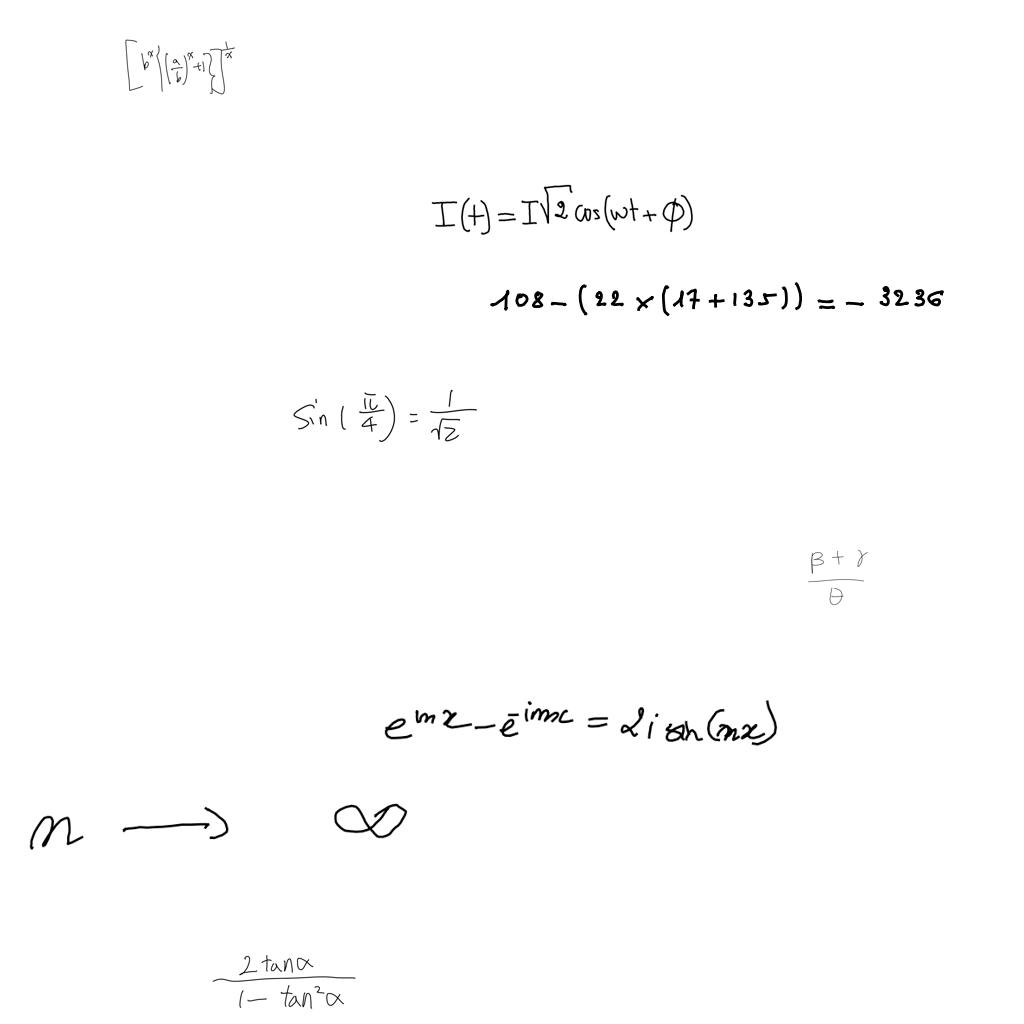 [b^x{(a/b)^x+1}]^{1/x}
I(t)=I√2 cos(wt+ϕ)
108-(22×(17+135))=-3236
sin(π/4)=1/√2
(β+γ)/θ
e^{inx}-e^{-inx}=2i sin(nx)
n ⟶ ∞
(2 tanα)/(1-tan²α)